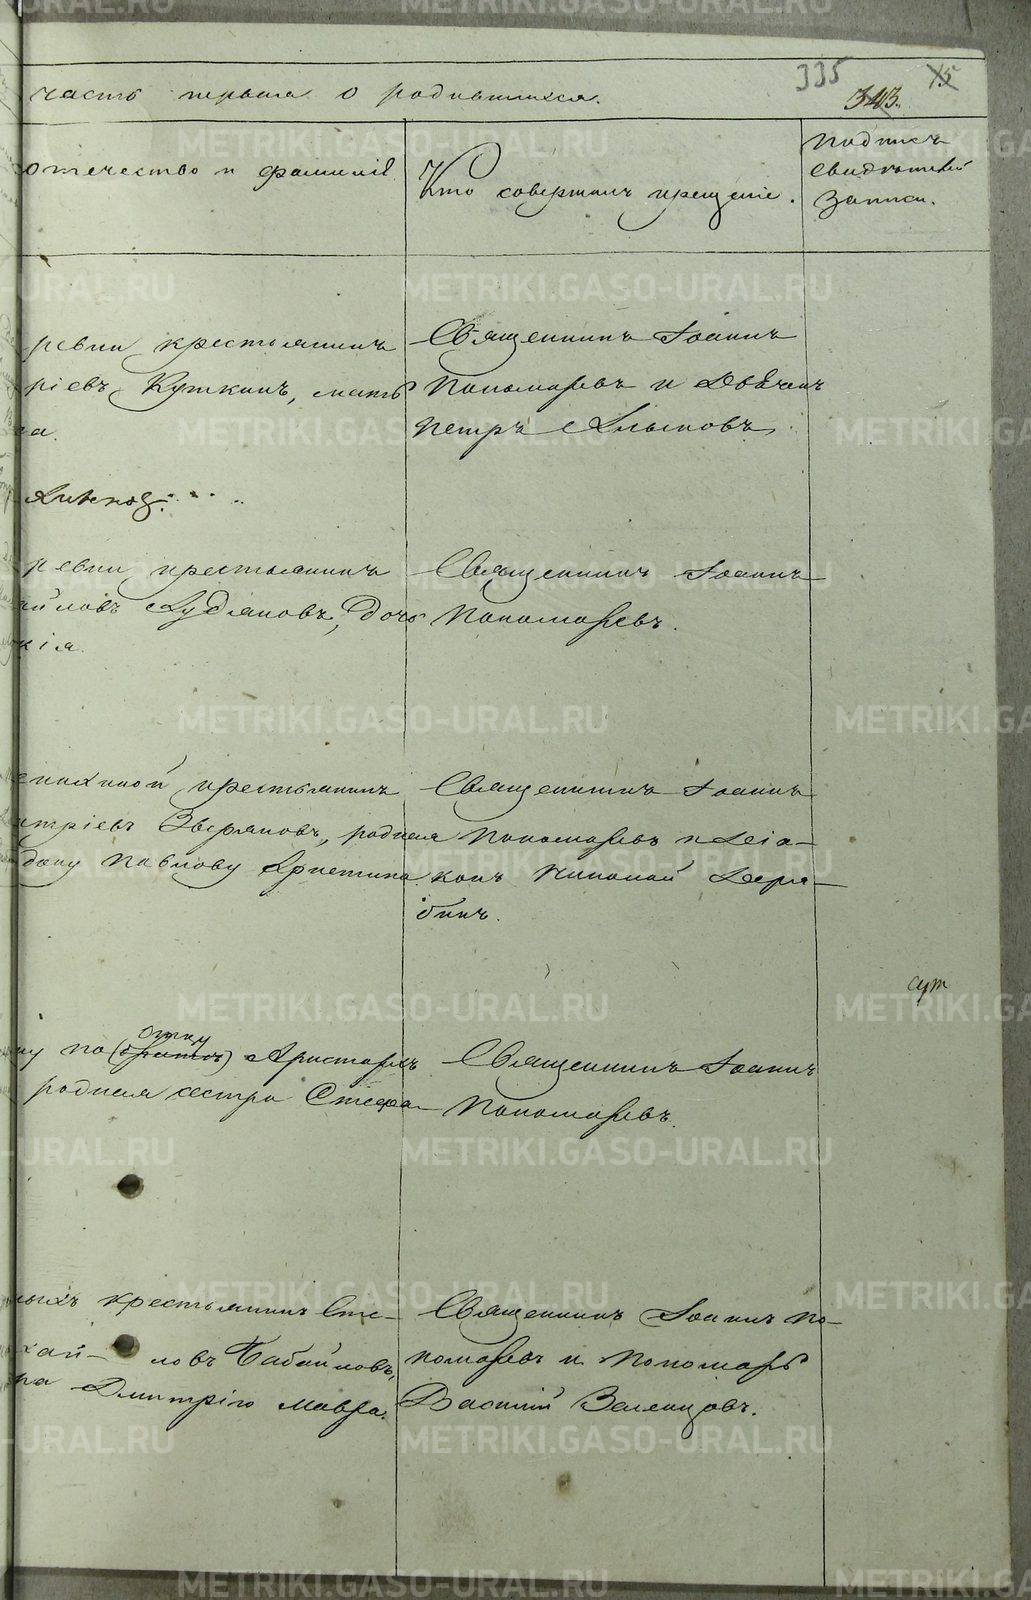 335
15
часть первая о родившихся.
343.
отечество и фамилiя
Кто совершалъ крещенiе.
Подписъ
свидѣтелей
записи.
ревни крестьянинъ
рiевъ Куткинъ, мать
на.
Священникъ Iоаннъ
Пономаревъ и Дьячекъ
Петръ Алыповъ
ревни крестьянинъ
йловъ Лудяковъ, дочь
кiя.
Священникъ Iоаннъ
Пономаревъ.
крестьянинъ
итрiевъ Зверяковъ, родная
Павлову Христина
Священникъ Iоаннъ
Пономаревъ и Дiа-
конъ Николай Деря-
бинъ.
сут
отцу
ну по (братъ) Аристархъ
родная сестра Стефа-
Священникъ Iоаннъ
Пономаревъ.
ныхъ крестьянинъ Сте-
хай- ловъ Бабайловъ,
ра Дмитрiю Мавра.
Священникъ Iоаннъ По-
номаревъ и Пономарь
Василiй Зеленцовъ.
METRIKI.GASO-URAL.RU